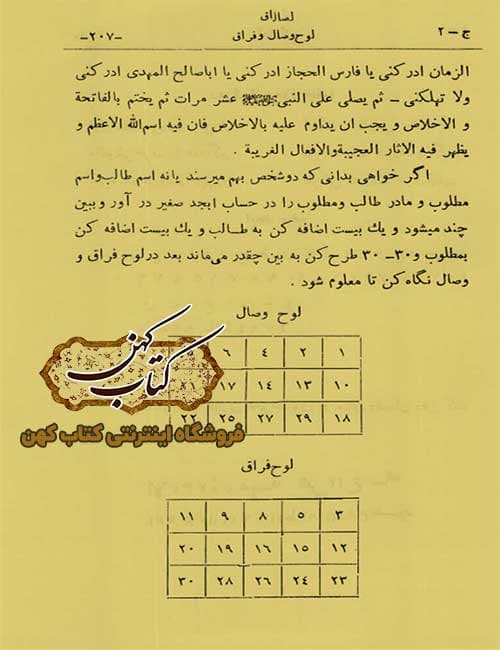 ج – ۲ لوح وصال وفراق -۲۰۷-
الزمان ادركنی یا فارس الحجاز ادركنی یا اباصالح المهدی ادركنی
ولا تهلكنی – ثم یصلی علی النبیﷺ عشر مرات ثم یختم بالفاتحة
و الاخلاص و یجب ان یداوم علیه بالاخلاص فان فیه اسم الله الاعظم و
یظهر فیه الاثار العجیبة والافعال الغریبة .
اگر خواهی بدانی كه دوشخص بهم میرسند یانه اسم طالب واسم
مطلوب و مادر طالب ومطلوب را در حساب ابجد صغیر در آور و ببین
چند میشود و یك بیست اضافه كن به طالب و یك بیست اضافه كن
بمطلوب و۳۰– ۳۰ طرح كن به بین چقدر می‌ماند بعد درلوح فراق و
وصال نگاه كن تا معلوم شود .
لوح وصال
۱ ۲ ۴ ۶
۱۰ ۱۳ ۱۴ ۱۷ ۲۱
۱۸ ۲۹ ۲۷ ۲۵ ۲۲
کتاب کهن
فروشگاه اینترنتی کتاب کهن
لوح فراق
۳ ۵ ۸ ۹ ۱۱
۱۲ ۱۵ ۱۶ ۱۹ ۲۰
۲۳ ۲۴ ۲۶ ۲۸ ۳۰